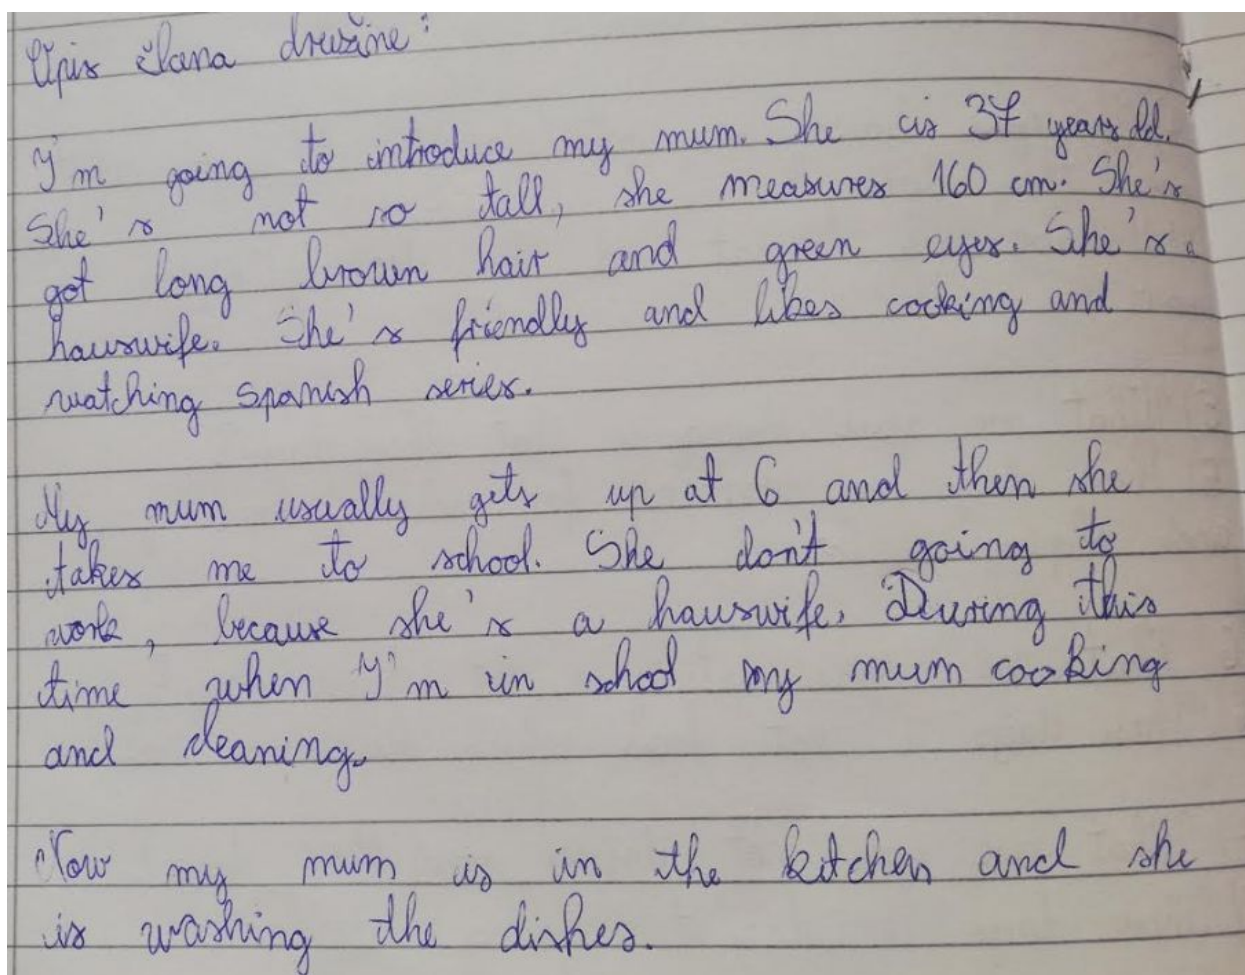 Opis člana družine:
I'm going to introduce my mum. She is 37 years old.
She's not so tall, she measures 160 cm. She's
got long brown hair and green eyes. She's a
hauswife. She's friendly and likes cooking and
watching Spanish series.
My mum usually gets up at 6 and then she
takes me to school. She don't going to
work, because she's a hauswife. During this
time when I'm in school my mum cooking
and cleaning.
Now my mum is in the kitchen and she
is washing the dishes.